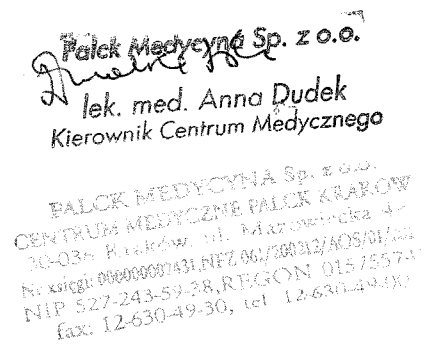 Palck Medycyna Sp. z o.o.
lek. med. Anna Dudek
Kierownik Centrum Medycznego
PALCK MEDYCYNA Sp. z o.o.
CENTRUM MEDYCZNE PALCK KRAKÓW
30-036 Kraków, ul. Mazowiecka 4-
Nr księgi: 000000007431, NFZ 061/200212/AOS/01/
NIP 527-243-59-38, REGON 0157557
fax: 12-630-49-30, tel 12-630-49-00